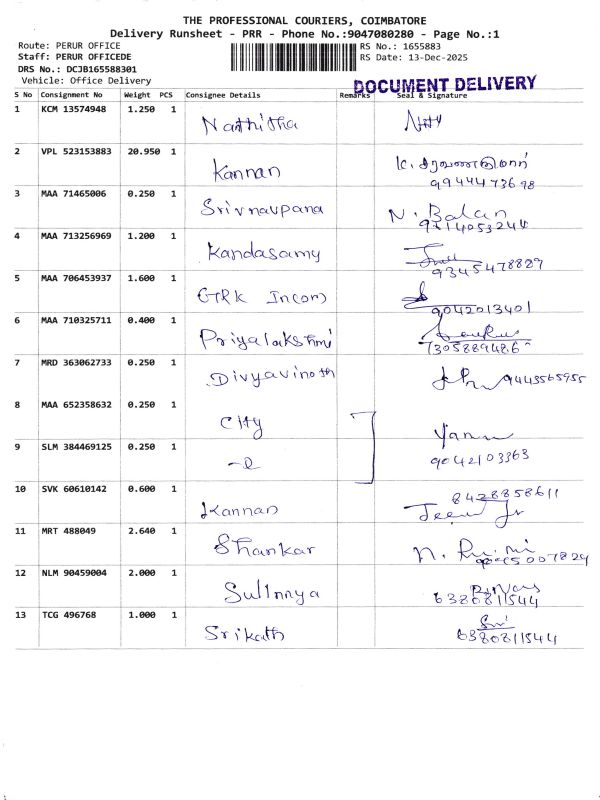 THE PROFESSIONAL COURIERS, COIMBATORE
Delivery Runsheet - PRR - Phone No.:9047080280 - Page No.:1
Route: PERUR OFFICE RS No.: 1655883
Staff: PERUR OFFICEDE RS Date: 13-Dec-2025
DRS No.: DCJB165588301
Vehicle: Office Delivery
DOCUMENT DELIVERY
S No Consignment No Weight PCS Consignee Details Remarks Seal & Signature
1 KCM 13574948 1.250 1 Nathitha
2 VPL 523153883 20.950 1 Kannan
9944473698
3 MAA 71465006 0.250 1 N. Balan
9714053244
4 MAA 713256969 1.200 1 Kandasamy
9345478829
5 MAA 706453937 1.600 1 GRK
9042013401
6 MAA 710325711 0.400 1 Priyalakshmi
7 MRD 363062733 0.250 1 Divyavinoth 9443565955
8 MAA 652358632 0.250 1 City
9 SLM 384469125 0.250 1 9042103363
10 SVK 60610142 0.600 1 Kannan 8428858611
11 MRT 488049 2.640 1 Shankar
12 NLM 90459004 2.000 1
6380811544
13 TCG 496768 1.000 1 Srikath
6380811544